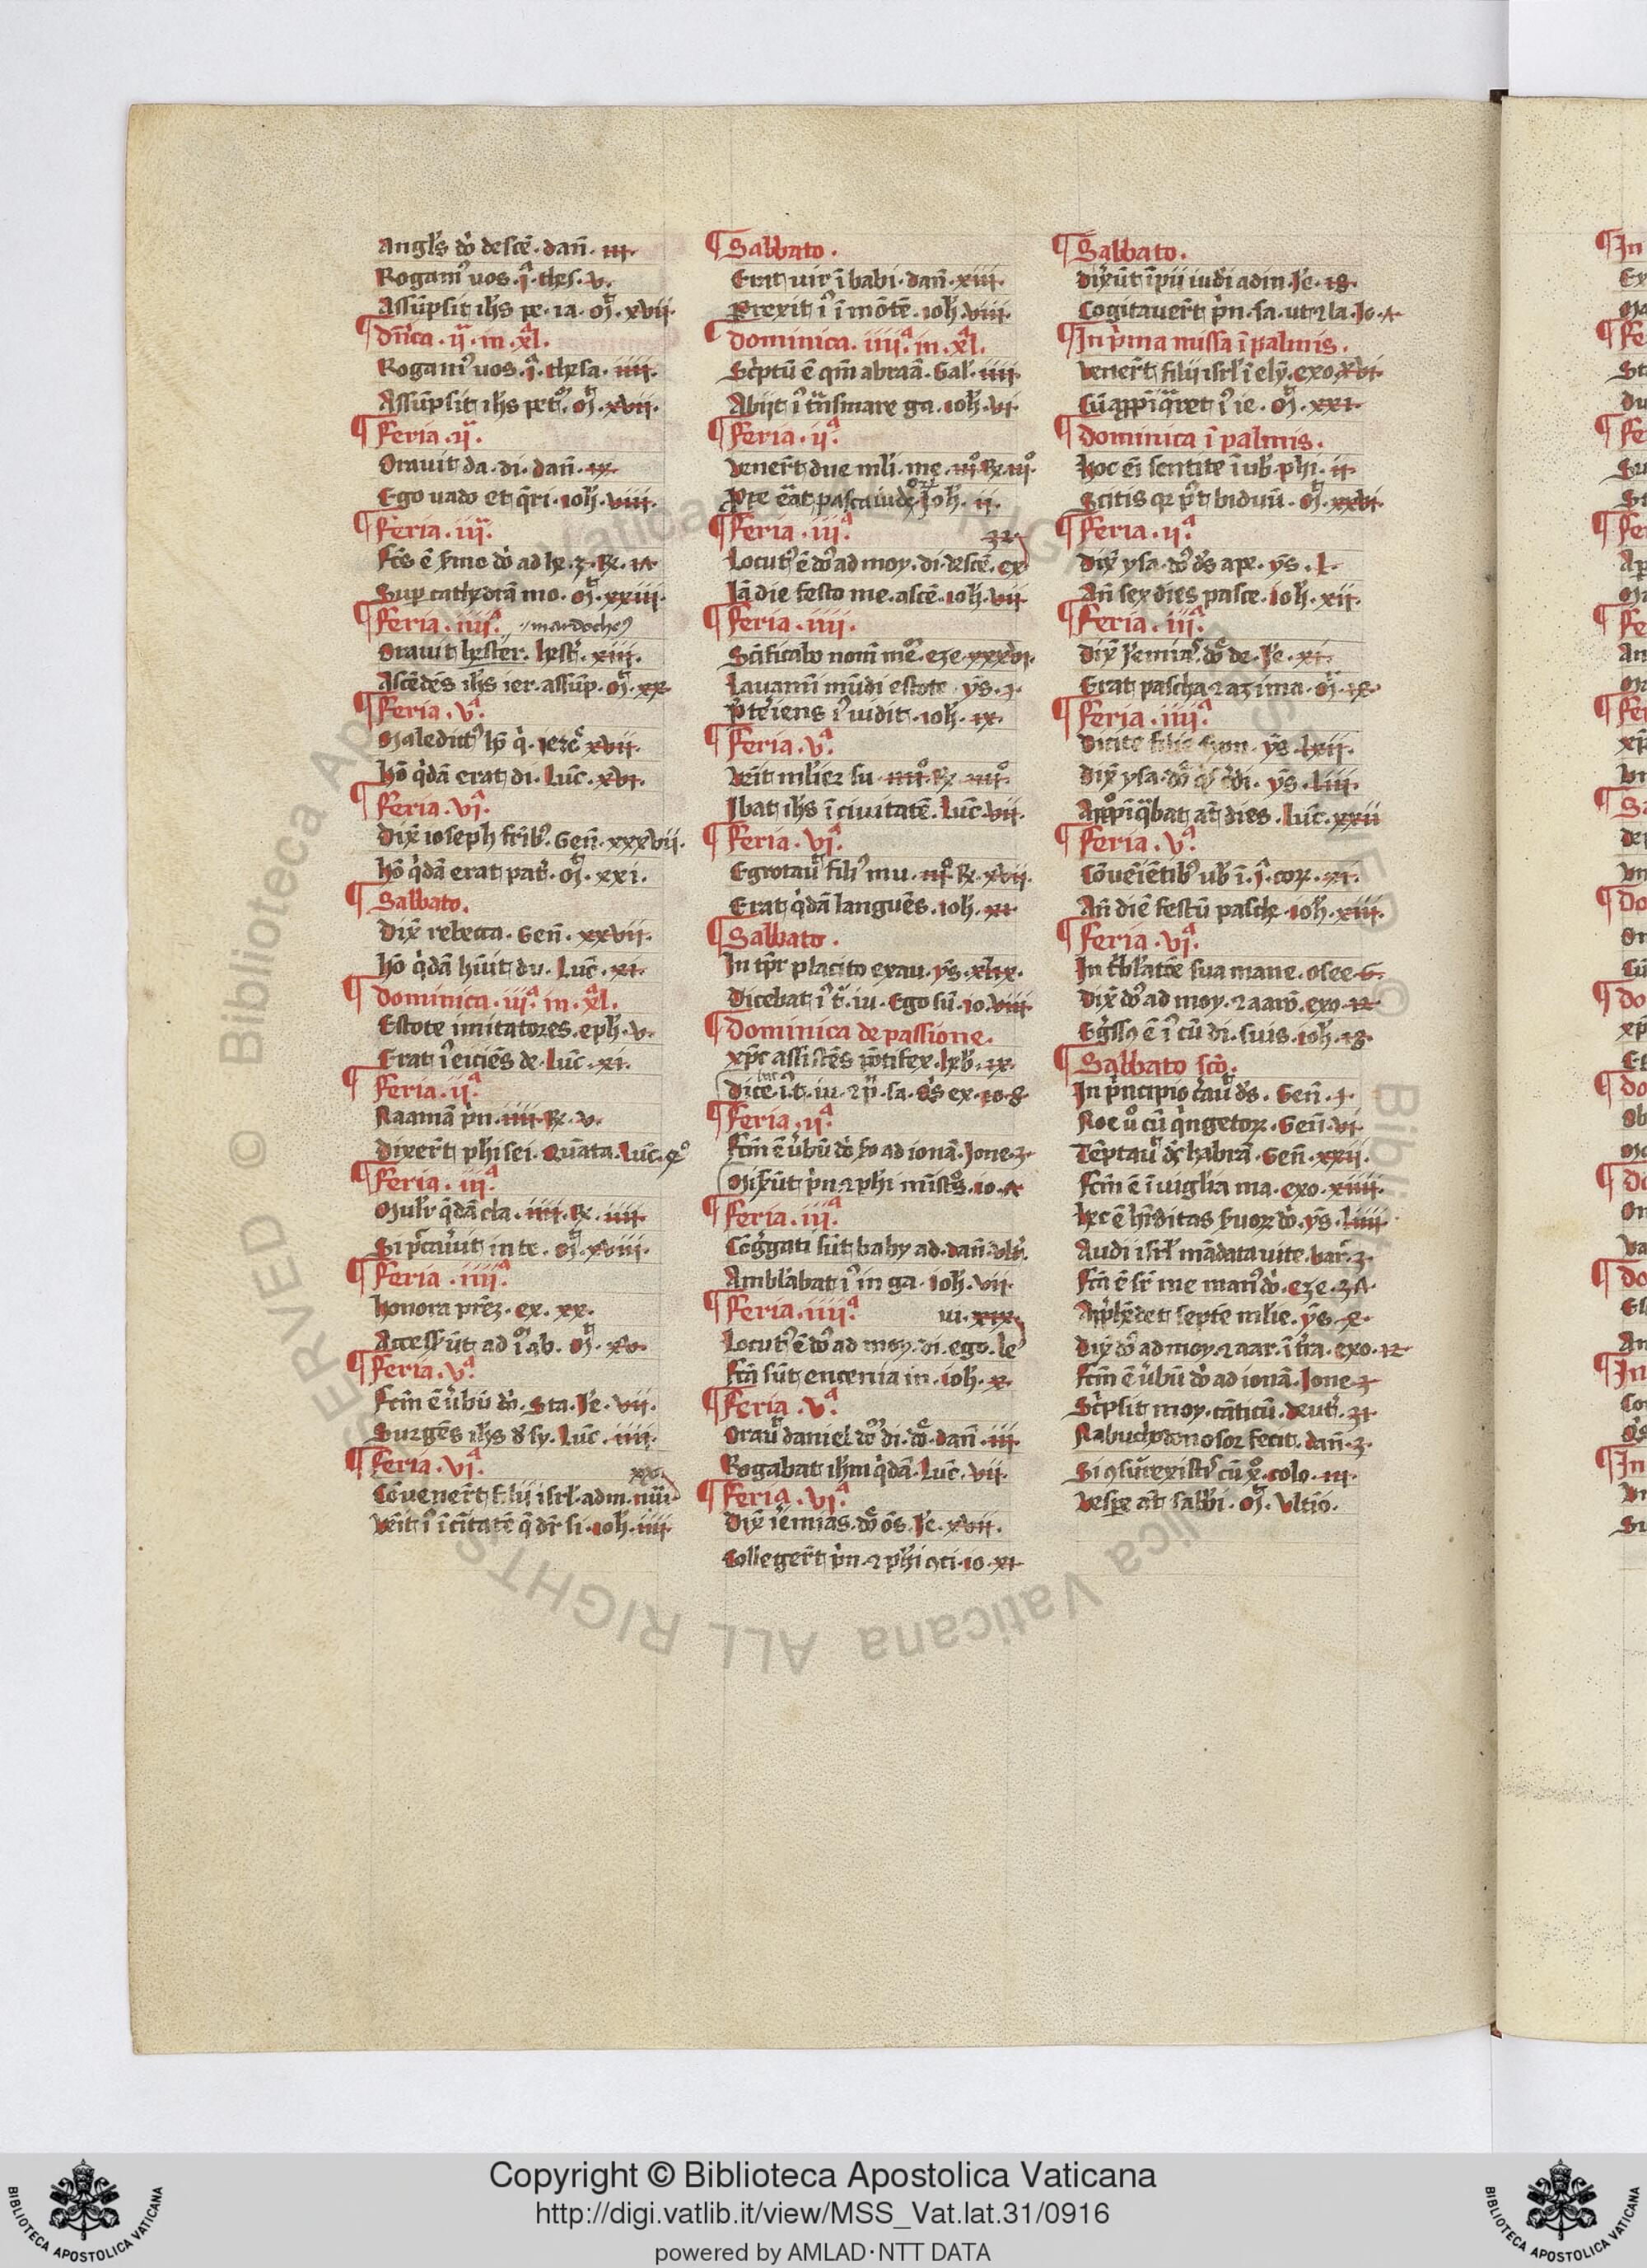 Angl's dñi descē. dañ. iii.
Rogam' uos. i.ª thes. v.
Assūpsit ihs pe. ia. Mª. xvii.
¶ Dñica. ii.ª in. xl.ª
Rogam' uos. i.ª thesa. iiii.
Assūpsit ihs pet'. Mª. xvii.
¶ Feria. ii.ª
Orauit da. di. dañ. ix.
Ego uado et q̄ri. ioħ. viii.
¶ Feria. iii.ª
Fc̄s ē s'mo dñi ad he. 3. Rͤ. 17.
Sup cathedrā mo. Mª. xxiii.
¶ Feria. iiii.ª mardoche'
Orauit hester. hest'. xiii.
Ascēdēs ihs ier. assūp. Mª. xx.
¶ Feria. v.ª
Maledict' hō q'. ierē xvii.
Hō q'dā erat di. Luc̄. xvi.
¶ Feria. vi.ª
Dix̄ ioseph frib'. Geñ. xxxvii.
Hō q'dā erat pat'. Mª. xxi.
¶ Sabbato.
Dix̄ rebecca. Geñ. xxvii.
Hō q'dā hūit du. Luc̄. xi.
¶ Dominica. iii.ª in. xl.ª
Estote imitatores. eph'. v.
Erat i' eiciēs de. Luc̄. xi.
¶ Feria. ii.ª
Naamā p'n. iiii. Rͤ. v.
Dixer̄t phisei. Quāta. Luc̄. 4º
¶ Feria. iii.ª
Mulr' q̄dā cla. iiii. Rͤ. iiii.
Si p'cauit in te. Mª. xviii.
¶ Feria. iiii.ª
Honora prēz. ex. xx.
Accesser̄ūt ad i' ab. Mª. xv.
¶ Feria. v.ª
Fcm̄ ē u'bū dñi. Sta. Je'. vii.
Surgēs ihs d' sy. Luc̄. iiii.
¶ Feria. vi.ª xx.
Cōuener̄t filii isrl'. adm. nūi
Vēit i' ī c'itatē q̄ dr̄ si. ioħ. iiii.
¶ Sabbato.
Erat uir ī babi. dañ. xiii.
Prexit i' ī mōtē. ioħ. viii.
¶ Dominica. iiii.ª in. xl.ª
Sc'ptū ē qm̄ abraā. Gal'. iiii.
Abiit i' t'nsmare ga. ioħ. vi.
¶ Feria. ii.ª
Vener̄t due mli'. me. iiiº Rͤ. iiiº.
Prope erat pasca iudeoꝝ. Joħ. ii.
¶ Feria. iii.ª 32.
Locut' ē dñs ad moy. di. descē. ex
Iā die festo me. ascē. ioħ. vii.
¶ Feria. iiii.
Sc̄ificabo nom̄ meū. eze. xxxvi.
Lauam̄ mūdi estote. ys̄. 1.
P't'iens i' uidit. ioħ. ix.
¶ Feria. v.ª
Vēit mulier su. iiiiº. Rͤ. iiiiº.
Ibat ihs ī ciuitatē. Luc̄. vii.
¶ Feria. vi.ª
Egrotauit fili' mu. iiiº. Rͤ. xvii.
Erat q'dā languēs. ioħ. xi.
¶ Sabbato.
In tp̄r placito exau. ys̄. xlix.
Dicebat i' t'. iu. Ego sū. io. viii.
¶ Dominica de passione.
Xp̄c assistēs pōtifex. heb'. ix.
Dice. i'. t'. iu. ⁊ p'. sa. q's ex. io. 8.
¶ Feria. ii.ª
Fcm̄ ē u'bū dñi so ad ionā. Jone. 3.
Miser̄ūt p'n ⁊ phi mīst'os. io. 7.
¶ Feria. iii.ª
Cōg'gati sūt baby ad. dañ. ult'.
Ambl'abat i' in ga. ioħ. vii.
¶ Feria. iiii.ª iii. xix.
Locut' ē dñs ad moy. di. ego. le'
Fcā sūt encenia in. ioħ. x.
¶ Feria. v.ª
Orauit daniel dñm di. dñe. dañ. iii.
Rogabat ihm q'dā. Luc̄. vii.
¶ Feria. vi.ª
Dix̄ ieremias. dñe oēs. Je'. xvii.
Colleger̄t p'n. ⁊ phi ꝯci. io. xi.
¶ Sabbato.
Dixer̄ūt īpii iudei adin. Je'. 18.
Cogitauer̄t p'n. sa. ut ⁊ la. Jo.
¶ In p'ma missa ī palmis.
Vener̄t filii isrl' ī elȳ. exo. xvi.
Cū app̄īq̄ret i' ie. Mª. xxi.
¶ Dominica ī palmis.
Hoc eī sentite ī uob'. phi. ii.
Scitis qꝛ p't biduū. Mª. xxvi.
¶ Feria. ii.ª
Dix̄ ysa. dñs d's ape. ys̄. l.
Añ sex dies pasce. Joħ. xii.
¶ Feria. iii.ª
Dix̄ Jeremias'. dñe de. Je'. xi.
Erat pascha ⁊ azima. Mª. 18.
¶ Feria. iiii.ª
Dicite filie syon. ys̄. lxii.
Dix̄ ysa. dñe q's c'di. ys̄. liii.
App̄īq̄bat aūt dies. Luc̄. xxii
¶ Feria. v.ª
Cōueīētib' uob' ī. i.ª coꝝ. xi.
Añ diē festū pasche. ioħ. xiii.
¶ Feria. vi.ª
In t'bl'atōe sua mane. osee. 6.
Dix̄ dñs ad moy. ⁊ aarō. exo. 12.
Eg'ssꝰ ē i' cū di. suis. ioħ. 18.
¶ Sabbato scō.
In p'ncipio c'auit d's. Geñ. 1.
Noe uº cū q'ngetoꝝ. Geñ. vi.
Tēptauit d's habrā. Geñ. xxii.
Fcm̄ ē ī uigilia ma. exo. xiiii.
Hec ē h'editas suoꝝ dñi. ys̄. liiii.
Audi isrl' mādata uite. bar'. 3.
Fcā ē sr̄ me man' dñi. eze. 37.
Apphēdet septē mlie. ys̄. 4.
Dix̄ dñs ad moy. ⁊ aar. ī t'ra. exo. 12.
Fcm̄ ē u'bū dñi ad ionā. Jone. 3.
Sc'psit moy. cāticū. deut'. 31.
Nabuchodonosor fecit. dañ. 3.
Si ꝯsurrexistis cū xº. colo. iii.
Vespe aūt sabb'i. Mª. Vltīo.
Copyright © Biblioteca Apostolica Vaticana
http://digi.vatlib.it/view/MSS_Vat.lat.31/0916
powered by AMLAD·NTT DATA
BIBLIOTECA APOSTOLICA VATICANA
BIBLIOTECA APOSTOLICA VATICANA